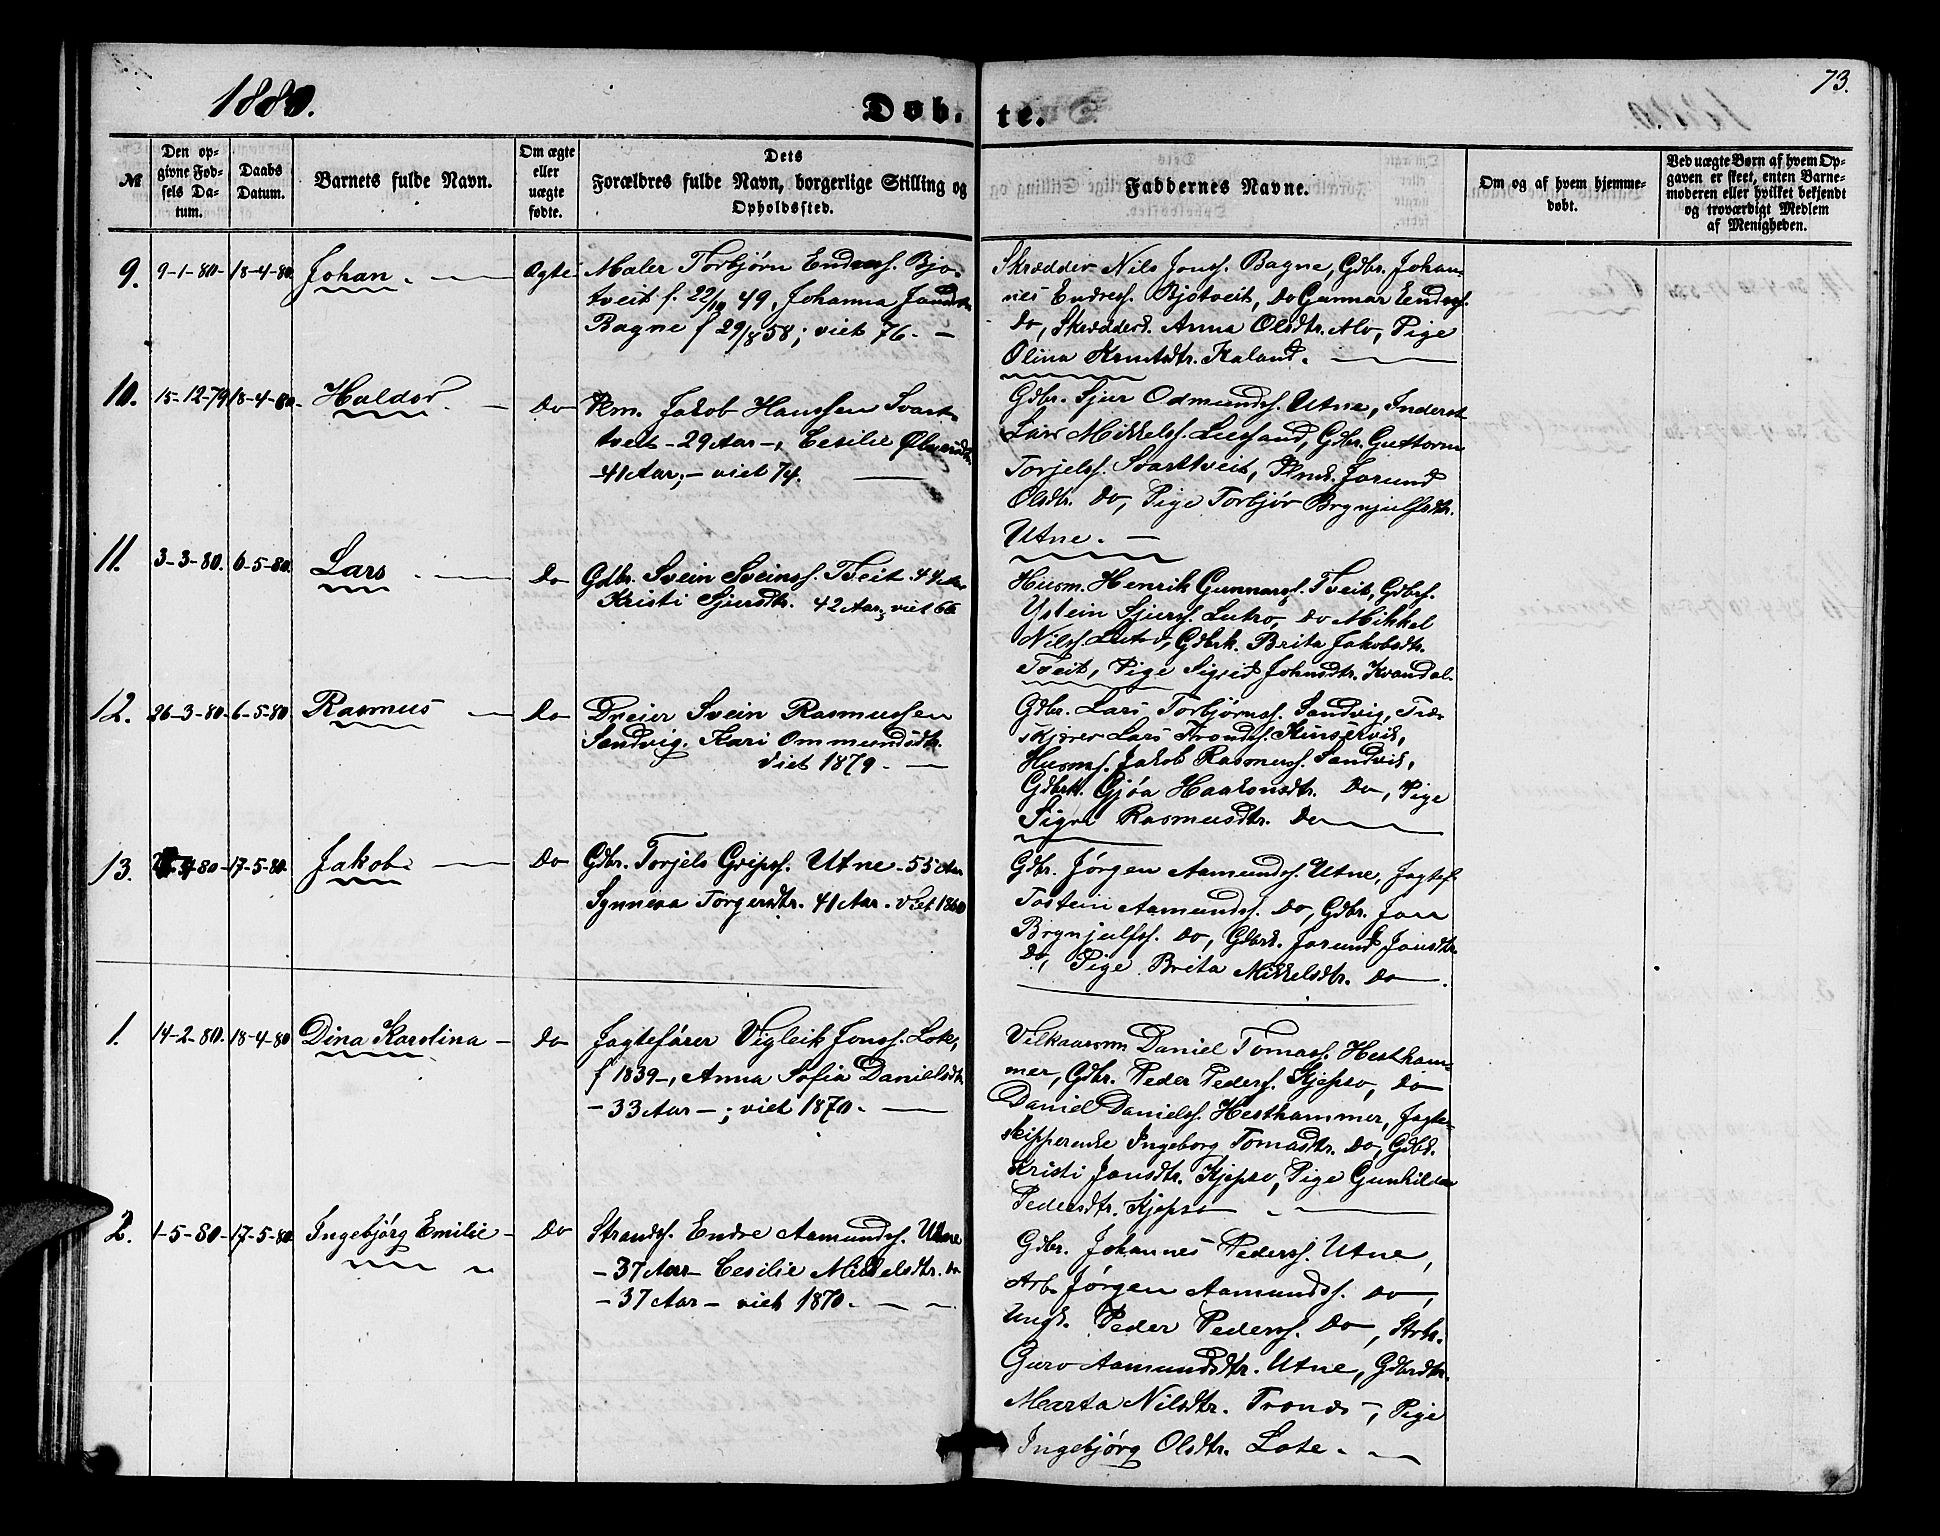 73.
1880.
Døb-
te.
№
Den op-
givne Fød-
sels Da-
tum.
Daabs
Datum.
Barnets fulde Navn.
Om ægte
eller
uægte
fødte.
Dets
Forældres fulde Navn, borgerlige Stilling og
Opholdssted.
Faddernes Navne.
Om og af hvem hjemme-
døbt.
Ved uægte Børn af hvem Op-
gaven er skeet, enten Barne-
moderen eller hvilket bekjendt
og troværdigt Medlem
af Menigheden.
9. 9-1-80- 18-4-80 Johan. Ægte Maler Torbjørn Endress. Bjo-
tveit f. 22/10 49, Johanna Jonsdtr.
Bagne f 29/8 58; viet 76. -
Skrædder Nils Jonss. Bagne, Gdbr. Johan-
nes Endress. Bjotveit, do Gunnar Endress.
do, Skrædderd. Anna Olsdtr. Alo, Pige
Olina Knutsdtr. Kaland.
10. 15-12-79 18-4-80. Haldor. do Plm. Jakob Hanssen Svart-
tveit - 29 Aar -, Cesilie
- 41 Aar, - viet 74.
Gdbr. Sjur Odmunds. Utne, Inderst
Lars Mikkelss. Guttorm
Torjelss. Svarttveit, Jorund
Olsdtr. do, Pige Torbjør Brynjulfsdtr.
Utne. -
11. 3-3-80. 6-5-80. Lars. do Gdbr. Svein Sveinss. Tveit 44 Aar
Kristi Sjursdtr. 42 Aar; viet 66
Husm. Henrik Gunnarss. Tveit, Gdbrs.
Ystein Sjurss. Lutro, do Mikkel
Nilss. Lutro, Gdbrk. Brita Jakobsdtr.
Tveit, Pige Sigrid Johnsdtr. Kvandal.
12. 26-3-80- 6-5-80 Rasmus do Dreier Svein Rasmussen
Sandvig. Kari Ommundsdtr.
viet 1879. -
Gdbr. Lars Torbjørnss. Sandvig, Træ-
skjærer Lars Tronds. Kinservik,
Husms. Jakob Rasmuss. Sandvik,
Gdbrk. Gjøa Haakonsdtr. do, Pige
Signe Rasmusdtr. do
13. 80- 17-5-80. Jakob. do Gdbr. Torjels Gripss. Utne - 55 Aar
Synneva Torgersdtr. 41 Aar. viet 1860
Gdbr. Jørgen Aamundss. Utne, Jagtef.
Tostein Aamundss. do, Gdbr. Jon
Brynjulfss. do, Gdbrd. Jorund Jonsdtr.
do, Pige Brita Mikkelsdtr. do
1. 14-2-80. 18-4-80 Dina Karolina - do Jagtefører Vigleik Jonss. Lote,
f 1839 -, Anna Sofia Danielsdtr.
- 33 Aar -; viet 1870.
Vilkaarsm Daniel Tomass. Hestham-
mer, Gdbr. Peder Peders. Kjepso, do
Daniel Danielss. Hesthammer, Jagte-
skipperenke Ingeborg Tomasdtr. do, Gdbd.
Kristi Jonsdtr. Kjepso, Pige Gunhilda
Pedersdtr. Kjepso
2. 1-5-80- 17-5-80 Ingebjørg Emilie - do Strands. Endre Aamundss. Utne
- 37 Aar - Cesilie Mikkelsdtr. do
- 37 Aar - viet 1870.
Gdbr. Johannes Pederss. Utne,
Arb. Jørgen Aamundss. do,
Ungk. Peder Pederss. do, Strbr.
Guro Aamundsdtr. Utne, Gdbrdtr.
Marta Nilsdtr. Trones, Pige
Ingebjørg Olsdtr. Lote.